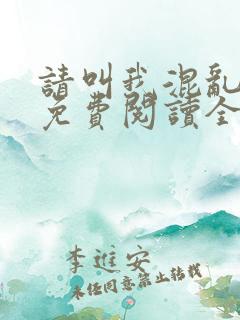 請叫我混亂
免費閱讀全
李進安
未經同意禁止轉載